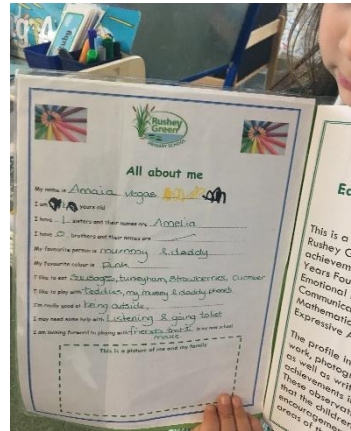 Rushey
Green
PRIMARY SCHOOL
All about me
My name is Amaia vegas
I am years old
I have 1 sisters and their names are Amelia
I have 0 brothers and their names are
My favourite person is mummy & daddy
My favourite colour is pink
I like to eat Sausages, tuneyham, Strawberries, Cucumber
I like to play with Teddies, my mummy & daddy phones.
I'm really good at being outside,
I may need some help with Listening & going toilet
I am looking forward to playing with friends that I in my new school
make
This is a picture of me and my family
This is a
Rushey G
achievem
Years Fou
Emotional
Communica
Mathematic
Expressive A
The profile in
work, photog
as well as writ
achievements i
These observat
that the children
encouragement
areas of th